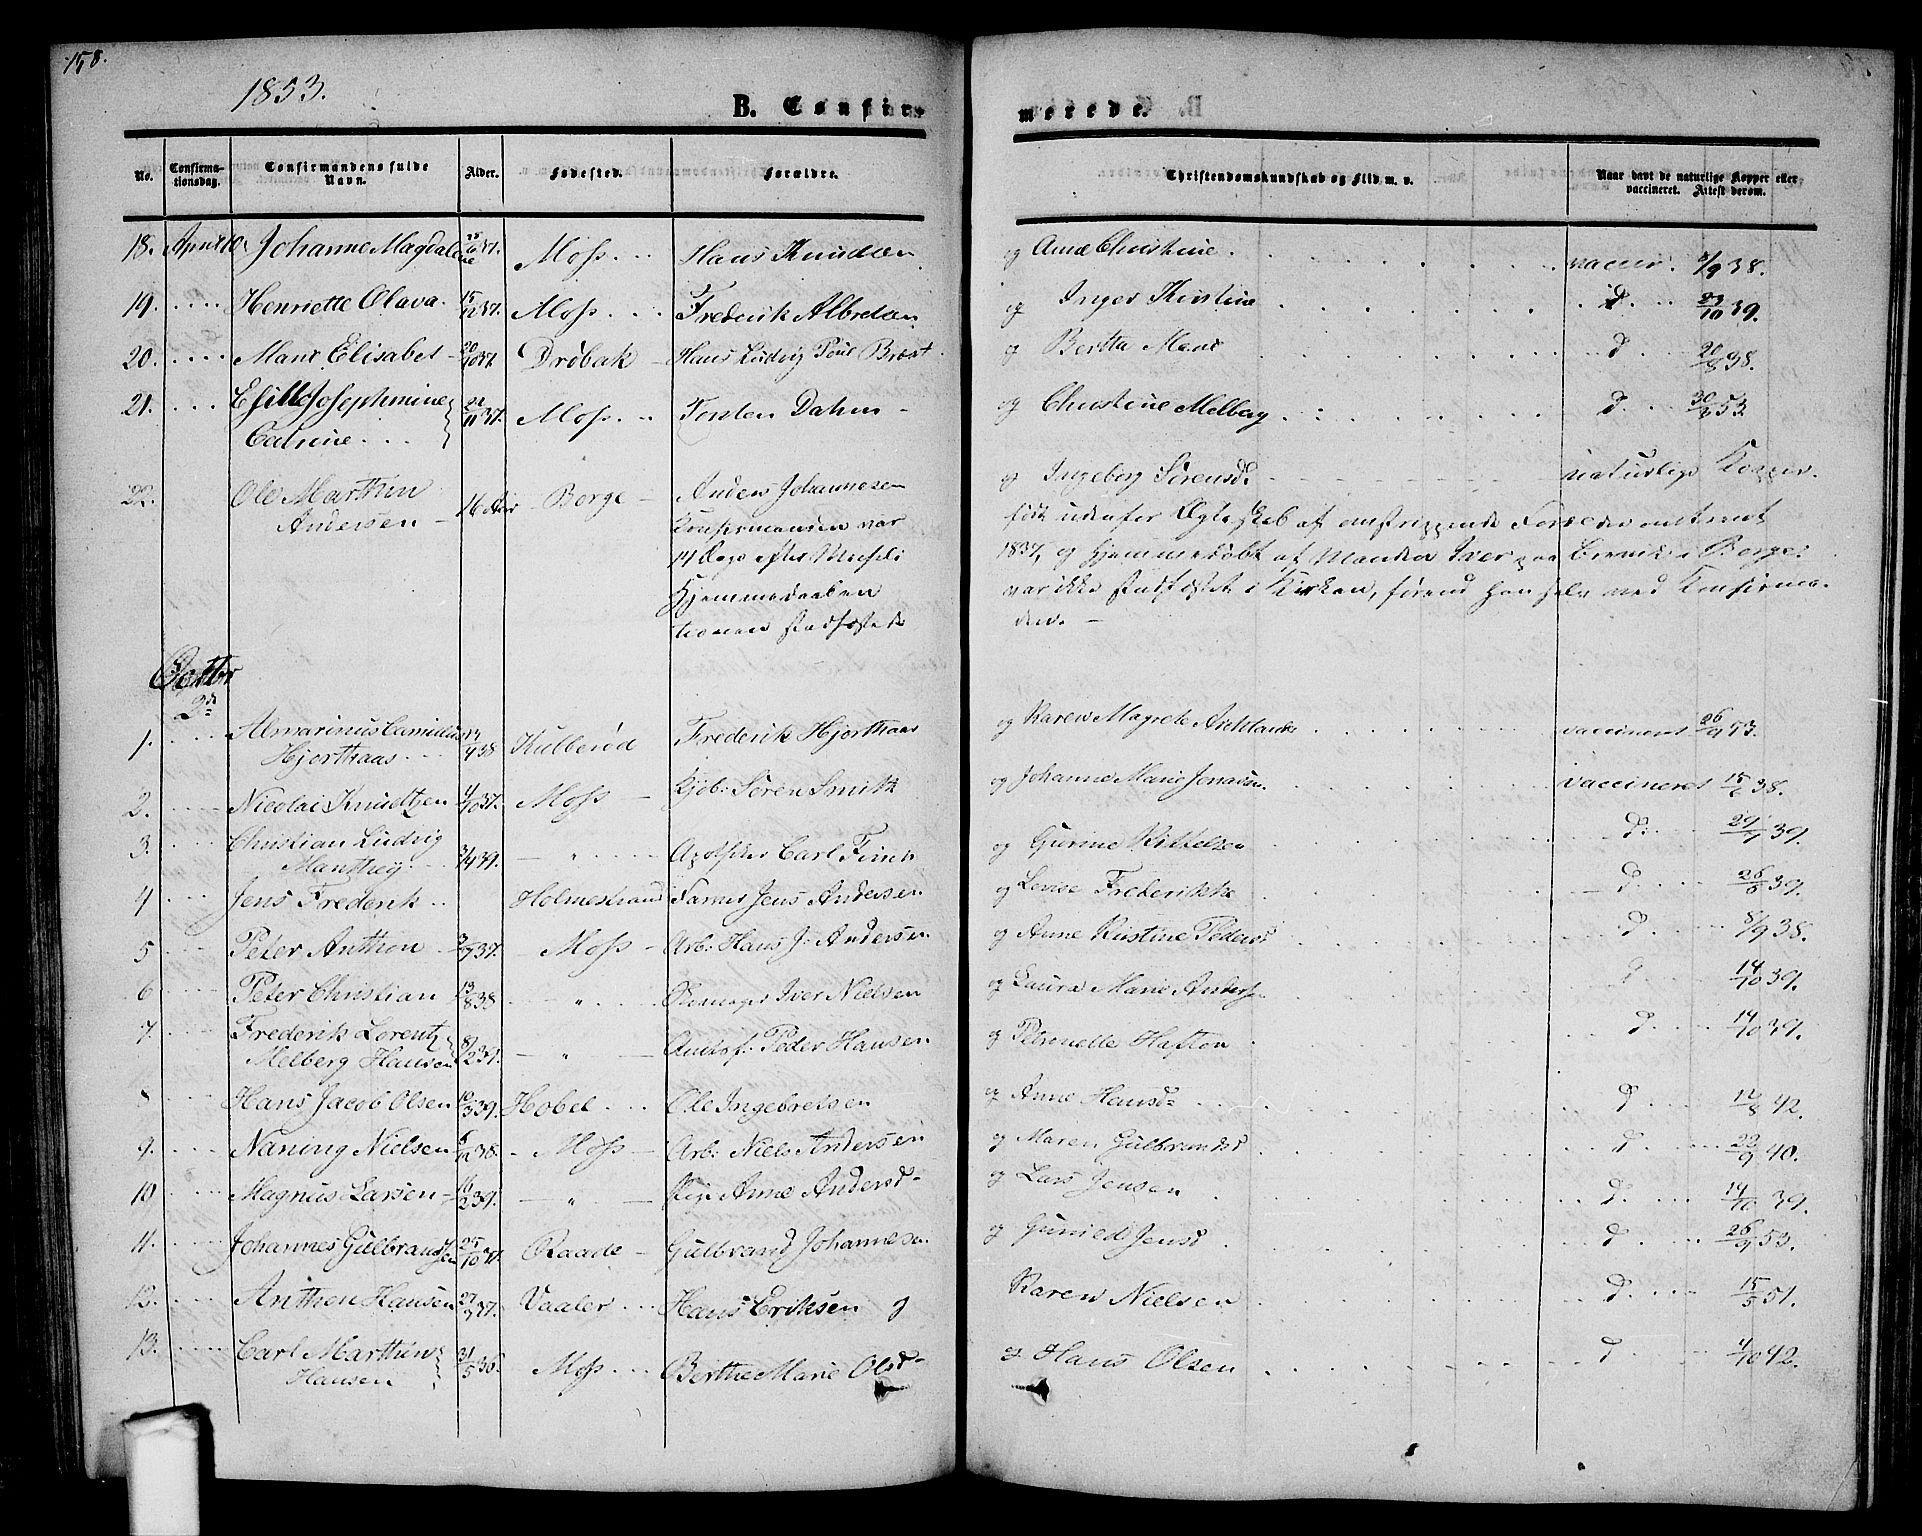 158.
1853.
B. Confirmerede.
No. Confirmationsdag. Confirmandens fulde Navn. Alder. Fødested. Forældre. Christendomskundskab og Flid m. v. Naar havt de naturlige Kopper eller vaccineret. Attest derom.
18. April 10. Johanne Magdalene 37. Moss Hans Knudsen og Anne Christine vaccin. 8/9 38.
19. Henriette Olava 15/12 37. Moss Frederik Albretsen og Inger Kirstine d 23/10 39.
20. Elisabet 20/10 37. Drøbak Hans Ludvig Poul Brest og Bertha d 20/8 38.
21. Josephmine Catrine 22/11 37. Moss Torsten Dahm og Christine Melberg d 30/3 53.
22. Ole Marthin Andersen 16 Aar Borge Anders Johannesen og Ingeborg Sørensd. naturlige Kopper.
Konfirmanden var
14 Dage efter
Hjemmedaaben
tionen stadfæstede
født udenfor Ægteskab af omstrippende Forældre omtrent
1837, og hjemmedøbt af Manden Iver paa i Borge;
var ikke stadfæstet i Kirken, førend han selv ved Konfirma-
den.
Octbr
2de
1. Almarinus Camidius Hjorthaas 38 Kulberød Frederik Hjorthaas og Karen Magrete vaccineret 26/9 53.
2. Nicolai Knudtzen 4/10 37. Moss Kjøb: Søren Smith og Johanne Marie Jonassen vaccineret 15/6 38.
3. Christian Ludvig Manthey 3/4 39. — " Apotheker Carl Finck og Gurine Kittelsen d: 29/7 39.
4 Jens Frederik Holmestrand Farver Jens Andersen og Lovise Frederikke d 26/8 39.
5 Peter Anthon 3/9 37. Moss Arb: Hans J: Andersen og Anne Kistine Pedersd d 8/9 38.
6 Peter Christian 13/8 38 — " Iver Nielsen og Laura Marie Anders d 14/10 39.
7. Frederik Lorentz Melberg Hansen 8/2 39. — " Peder Hansen og Petronelle Hafton d 14/10 39.
8 Hans Jacob Olsen 10/3 39. Hobel Ole Ingebretsen og Anne Hansd d 12/8 42.
9. Naning Nielsen 5/12 38. Moss Arb: Niels Andersen og Maren Gulbrandsd d 22/9 40.
10 Magnus Larsen 16/2 39. " Pige Anne Andersd og Lars Jensen d. 14/10 39.
11. Johannes Gulbrandsen 25/10 37. Raade Gulbrand Johannesen og Gunild Jensd d 26/9 53.
12. Anthon Hansen 27/3 37. Vaaler Hans Eriksen og Karen Nielsen d. 15/5 51.
13. Carl Marthin Hansen 31/5 36. Moss Berthe Marie Olsd og Hans Olsen d 4/10 42.